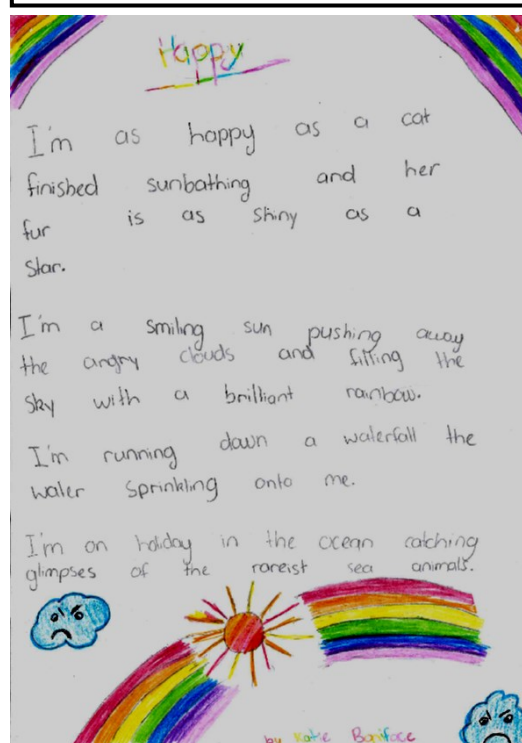 Happy
I'm as happy as a cat
finished sunbathing and her
fur is as shiny as a
star.
I'm a smiling sun pushing away
the angry clouds and filling the
sky with a brilliant rainbow.
I'm running down a waterfall the
water sprinkling onto me.
I'm on holiday in the ocean catching
glimpses of the rareist sea animals.
by Katie Boniface